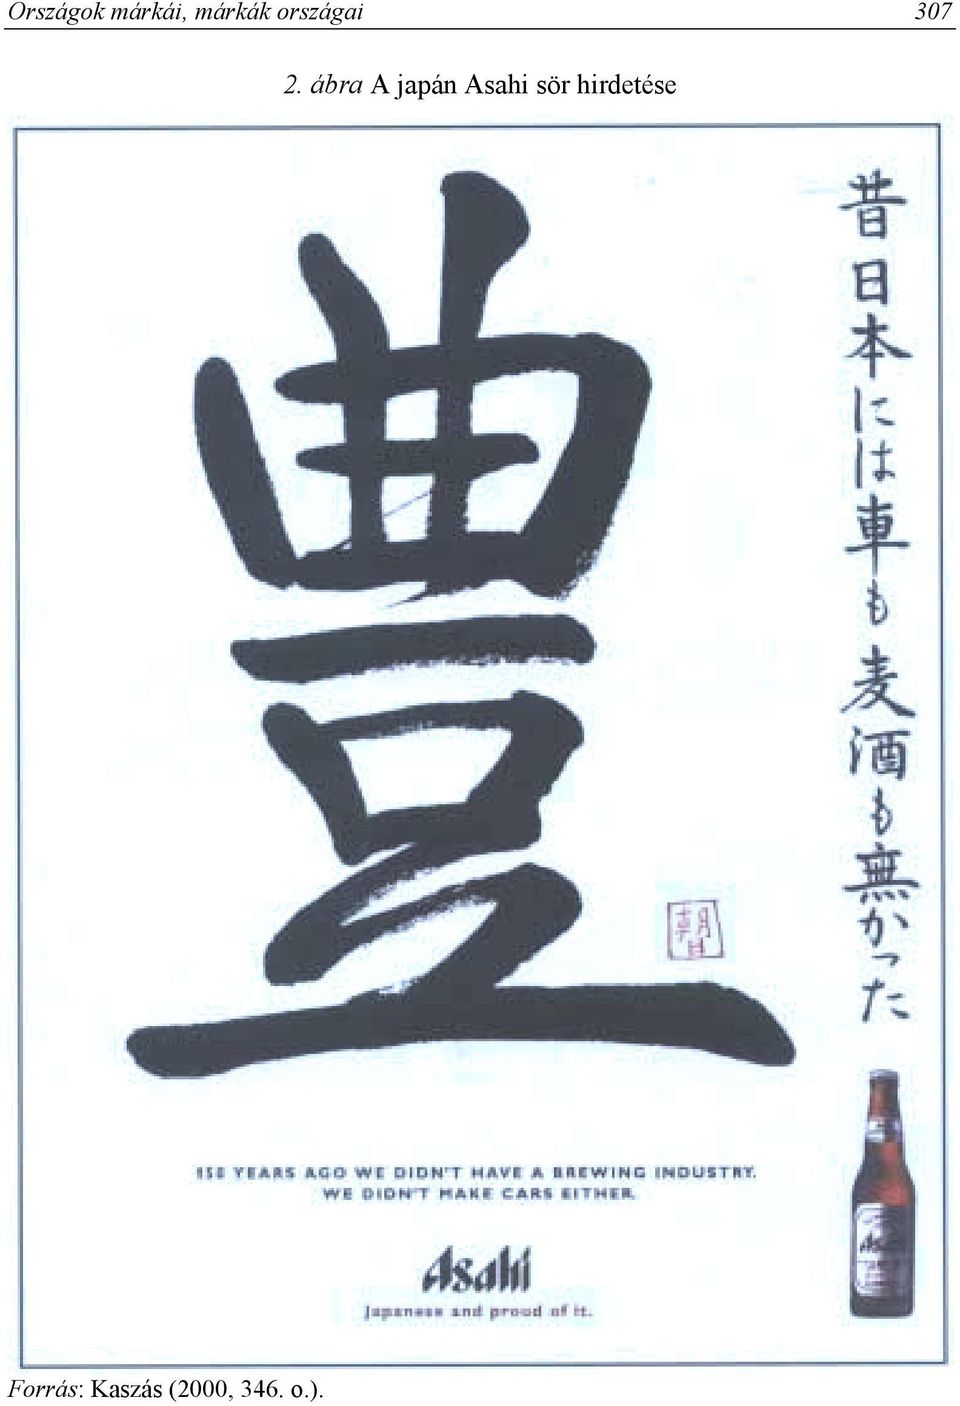 Országok márkái, márkák országai 307
2. ábra A japán Asahi sör hirdetése
豊
昔日本には車も麦酒も無かった
朝日
150 YEARS AGO WE DIDN'T HAVE A BREWING INDUSTRY.
WE DIDN'T MAKE CARS EITHER.
Asahi
Japanese and proud of it.
Asahi
Forrás: Kaszás (2000, 346. o.).